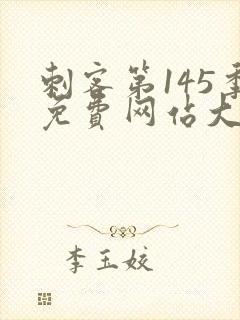 刺客第145季
免費网佔大
李玉姣